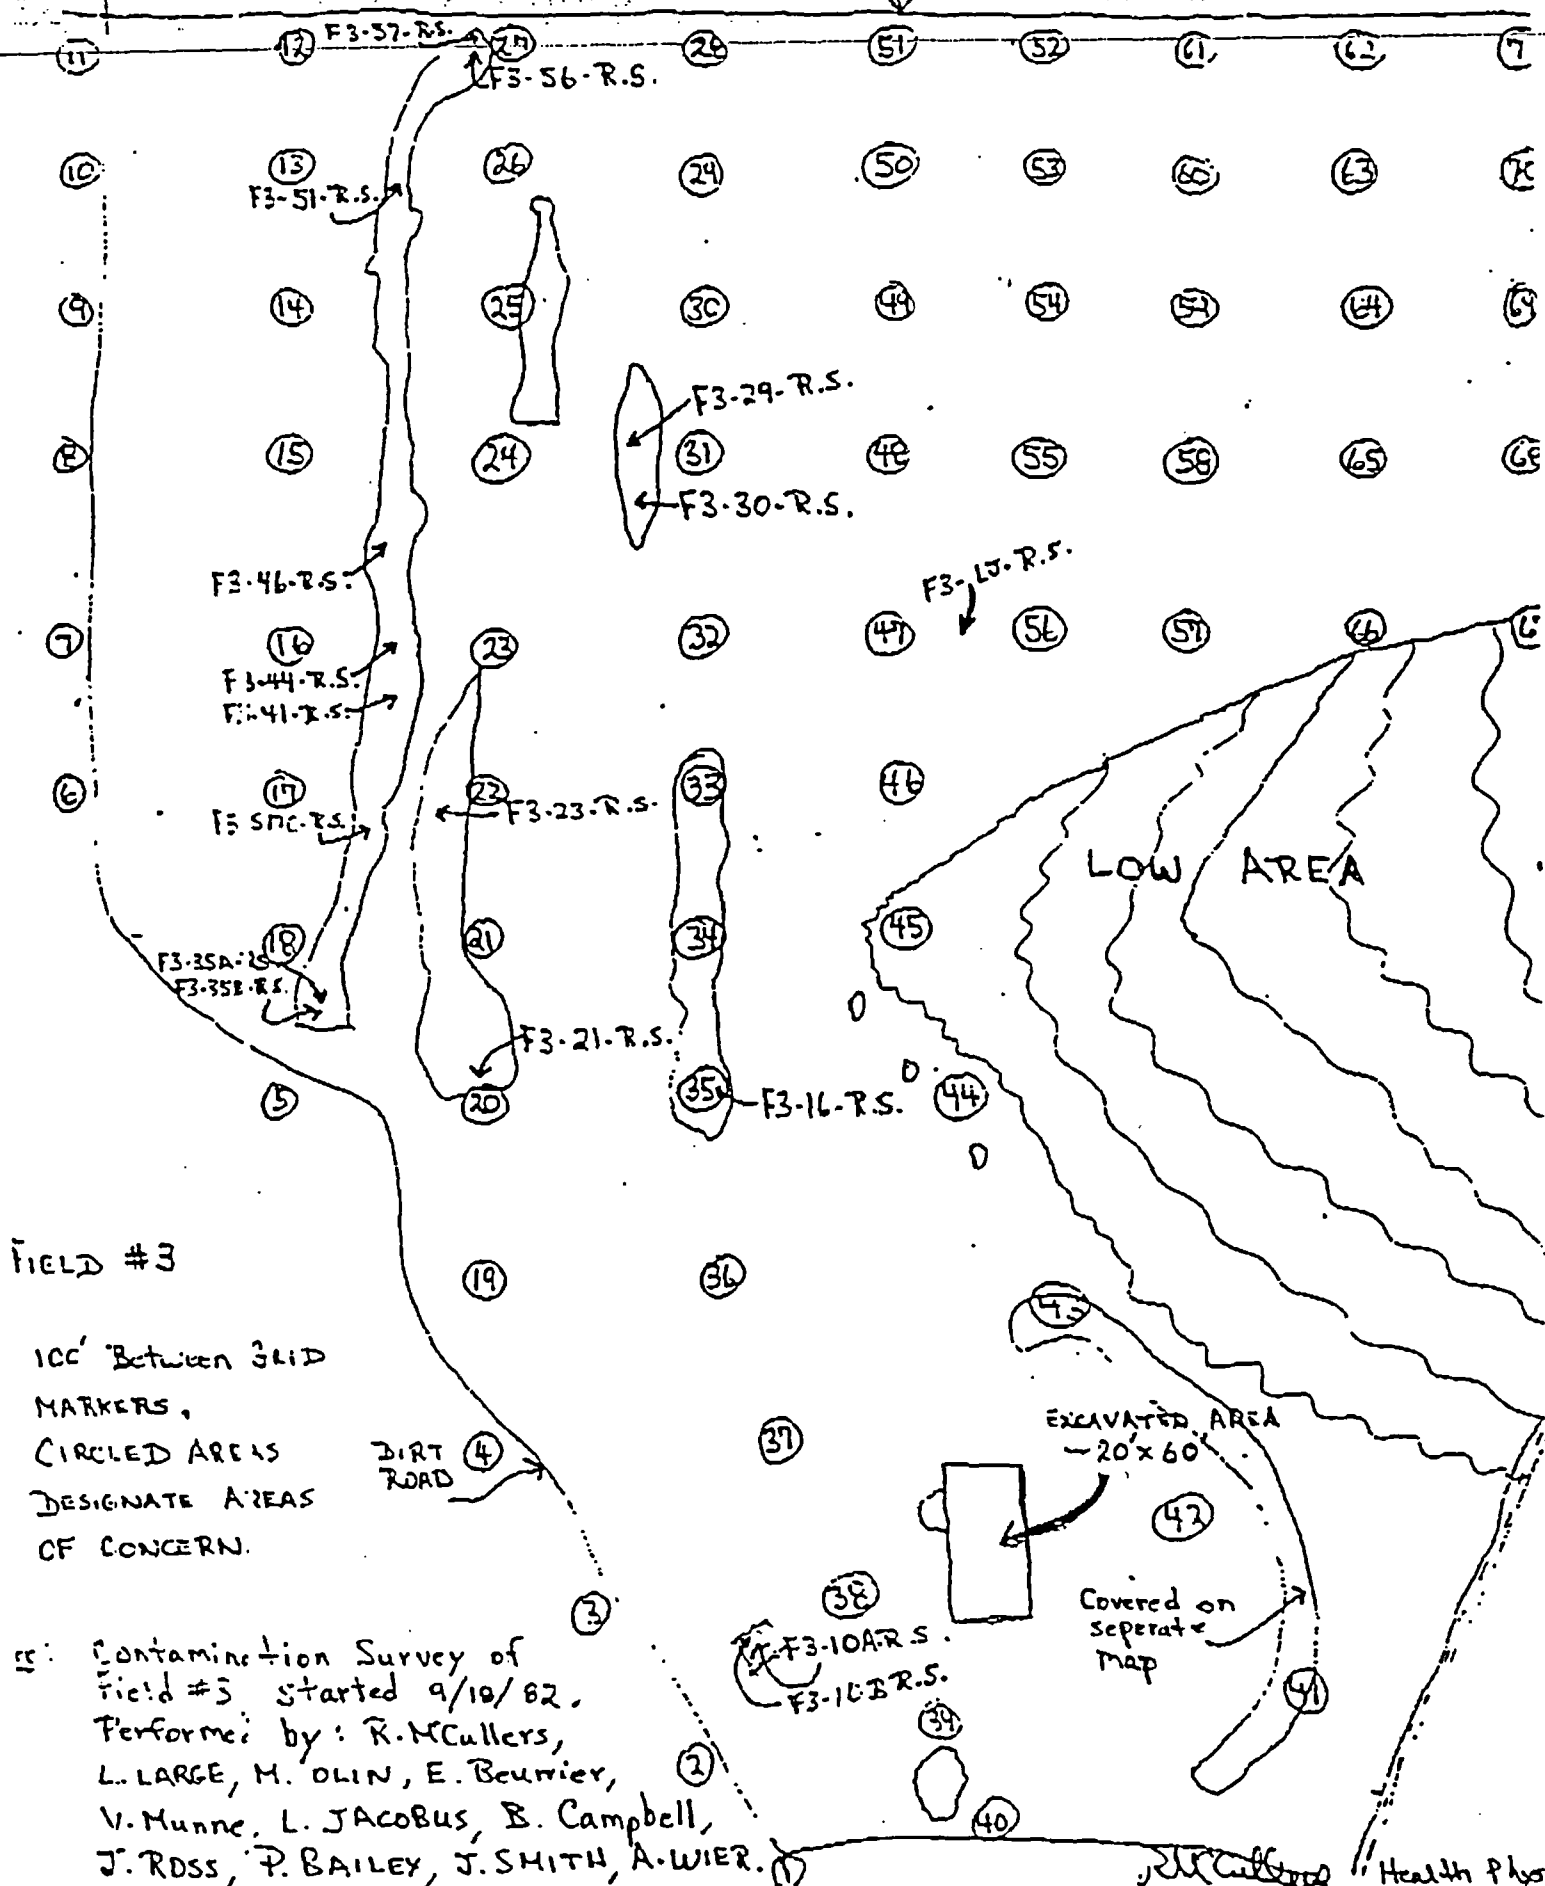 F3-57-R.S.
11 12 27 28 51 52 61 62 7
F3-56-R.S.
10 13 26 29 50 53 60 63
F3-51-R.S.
9 14 25 30 49 54 59 64 69
F3-29-R.S.
8 15 24 31 48 55 58 65 68
F3-30-R.S.
F3-LJ-R.S.
F3-46-R.S.
7 16 23 32 47 56 57 66 6
F3-44-R.S.
41-R.S.
6 17 22 33 46
F3-23-R.S.
LOW AREA
18 21 34 45
F3-35A-RS
F3-35B-R.S.
F3-21-R.S.
5 20 35 44
F3-16-R.S.
FIELD #3
19 36
43
100' Between GRID
MARKERS.
CIRCLED AREAS
DESIGNATE AREAS
OF CONCERN.
DIRT
ROAD
4 37
EXCAVATED AREA
~20'x60'
42
3 38
Covered on
seperate
map
F3-10A-R.S.
F3-10B R.S.
41
39
Contamination Survey of
Field #3 started 9/18/82.
Performed by: R. McCullers,
L. LARGE, M. OLIN, E. Beumier,
V. Munne, L. JACOBUS, B. Campbell,
J. ROSS, P. BAILEY, J. SMITH, A. WIER.
2
40
1
Health Phys